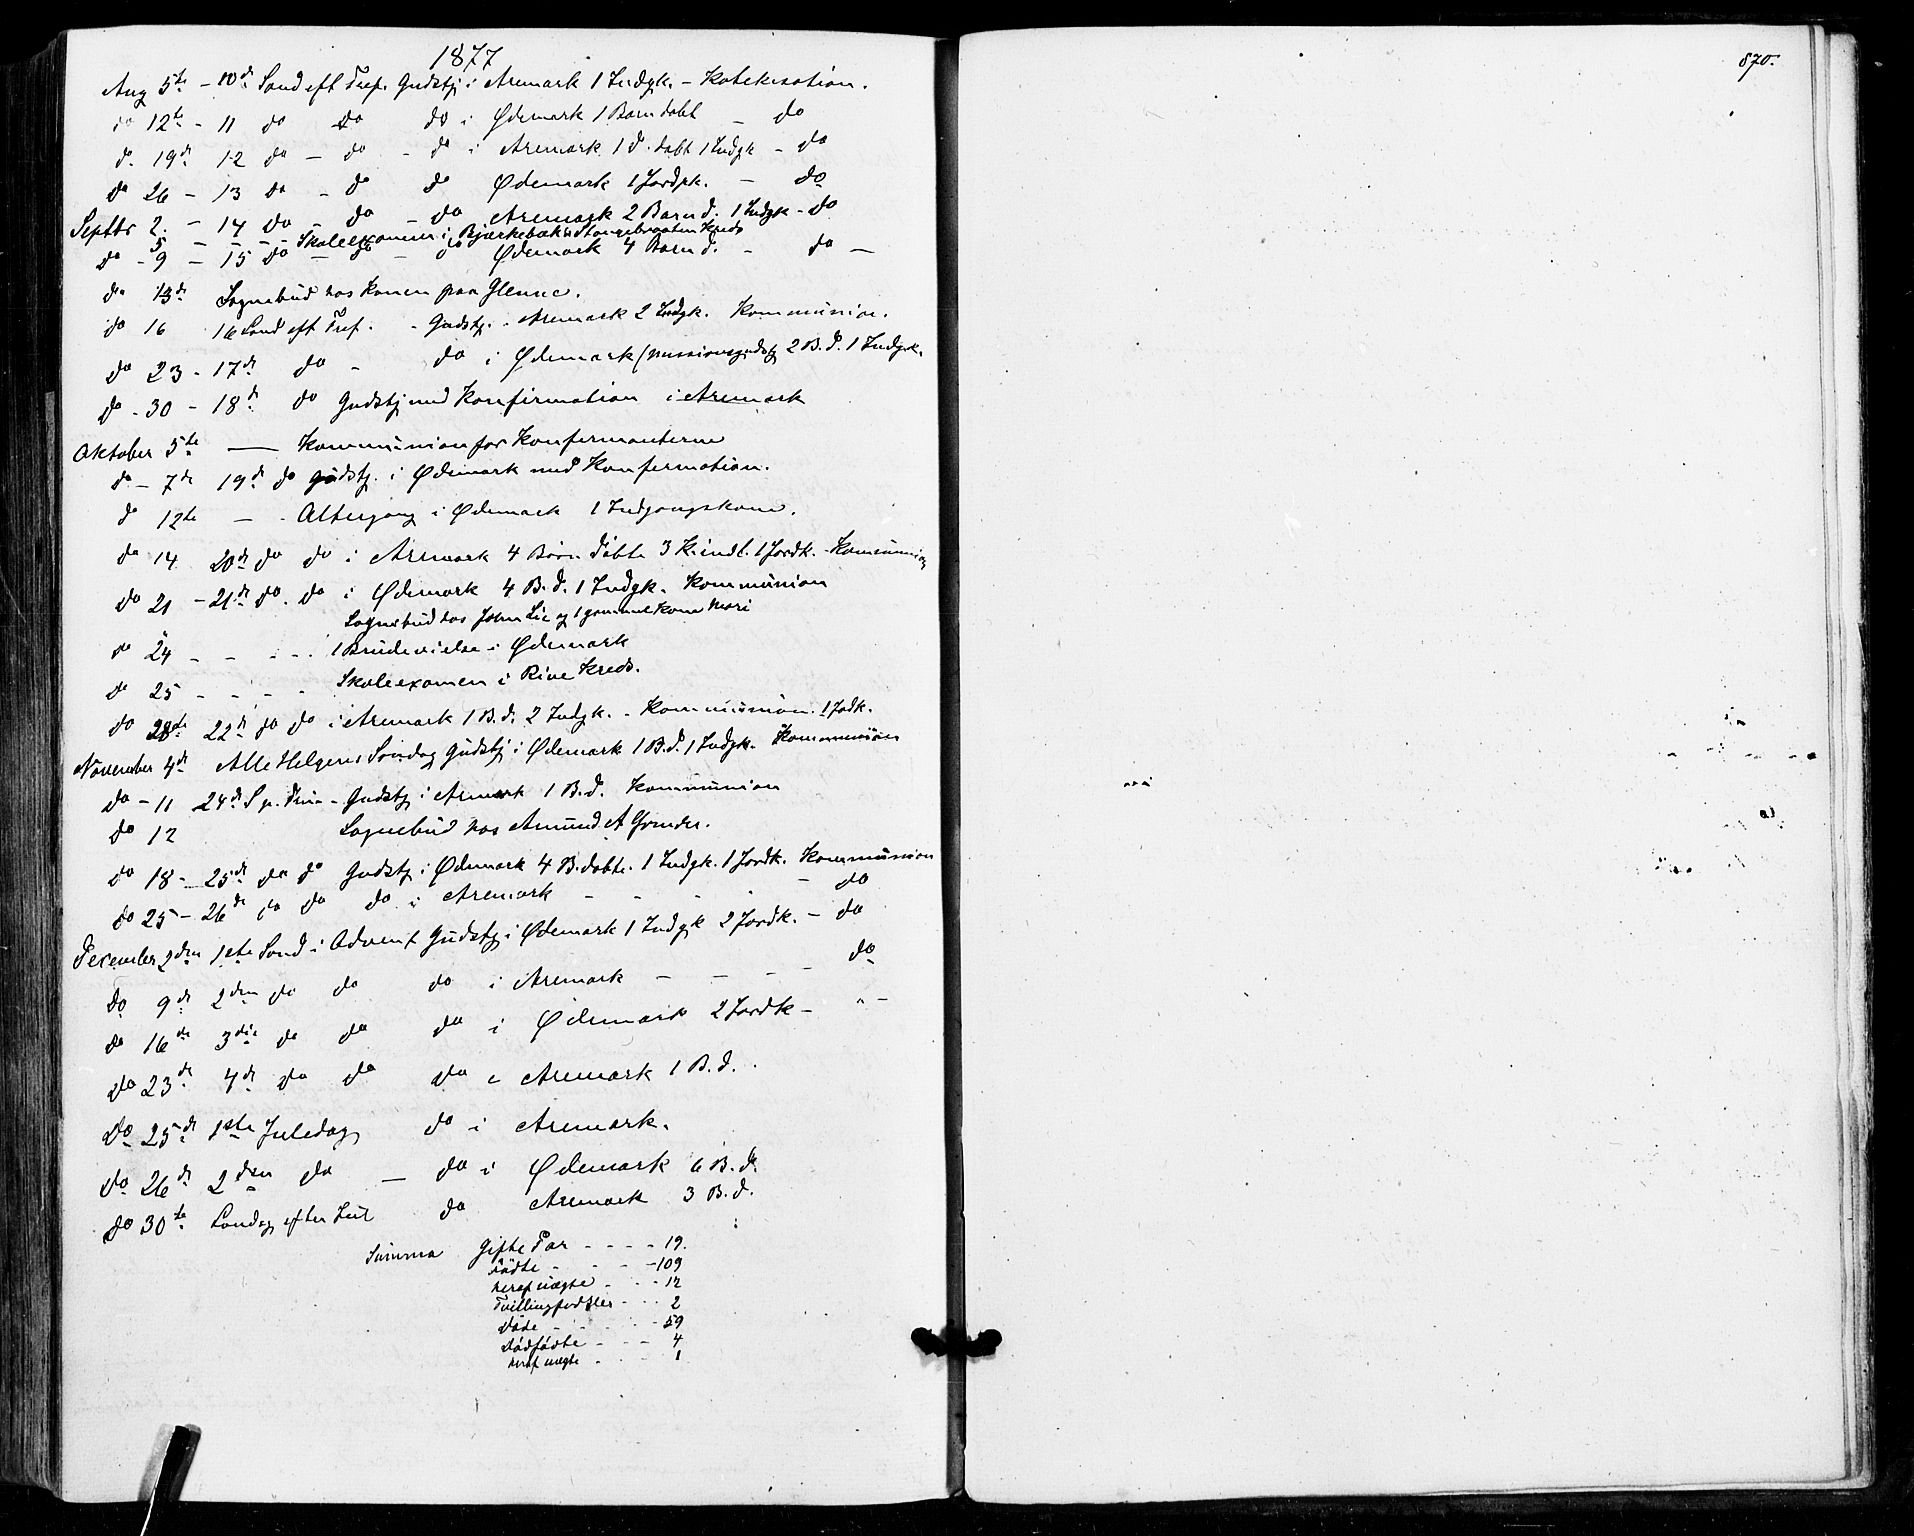 1877
Aug 5te - 10de Sønd eft Tref. Gudstj i Aremark 1 Indgk. - Katekisation.
do 12te - 11 do do do i Ødemark 1 Barn døbt - do
do 19de 12 do - do - do i Aremark 1 B. døbt 1 Indgk - do
do 26 - 13 do - do do Ødemark 1 Jordpk. - do
Septbr 2. - 14 do - do - do Aremark 2 Barn d. 1 Indgk - do
5 - - - - Skoleexamen i Bjærkebæk & Stangebraaten Kreds
do - 9 - 15 do - do - do Ødemark 4 Barn d. - do -
do 13de Sognebud hos Konen paa Glenne.
do 16 16 Sønd eft Tref. - Gudstj. - Aremark 2 Indgk. Kommunion.
do 23 - 17de do - do i Ødemark (Missionsgudstj 2 B. d. 1 Indgk.
do - 30 - 18de do Gudstj med Konfirmation i Aremark
Oktober 5te — Kommunion for Konfirmanterne
do - 7de 19de do gudstj. i Ødemark med Konfirmation.
do 12te - - Altergang i Ødemark 1 Indgangskone.
do 14 20de do do i Aremark 4 Børn døbte 3 K. indl. 1 Jordk. - Kommunion
do 21 - 21de do. do i Ødemark 4 B. d. 1 Indgk. Kommunion
Sognebud hos John Lie og 1 gammel Kone Mari
do 24 - - - - 1 Brudevielse i Ødemark
do 25 - - - - Skoleexamen i Rive Kreds.
do 28de 22de do do i Aremark 1 B. d. 2 Indgk. - Kommunion. 1 Jodk.
November 4de Alle Helgens Søndag Gudstj i Ødemark 1 B. d. 1 Indgk. Kommunion
do - 11 24de S p. Trin - Gudstj i Aremark 1 B. d. Kommunion
do 12 Sognebud hos Amund A
do 18 - 25de do do Gudstj i Ødemark 4 B. døbte. 1 Indgk. 1 Jordk. Kommunion
do 25 - 26de do do do i Aremark - - - - do
December 2den 1ste Sønd i Advent Gudstj i Ødemark 1 Indgk 2 Jordk. - do
do 9de 2den do do do i Aremark - - - - do
do 16de 3die do do do i Ødemark 2 Jordk - " -
do 23de 4de do do do i Aremark 1 B. d.
do 25de 1ste Juledag do i Aremark.
do 26de 2den do — do i Ødemark 6 B. d.
do 30te Søndag efter Jul do Aremark 3 B. d.
Summa Gifte Par - - - - 19.
Fødte - - - - - 109
heraf uægte - - - 12
Tvillingfødsler - - - 2
Døde - - - - - 59
Dødfødte - - - 4
heraf uægte - - - 1
870.